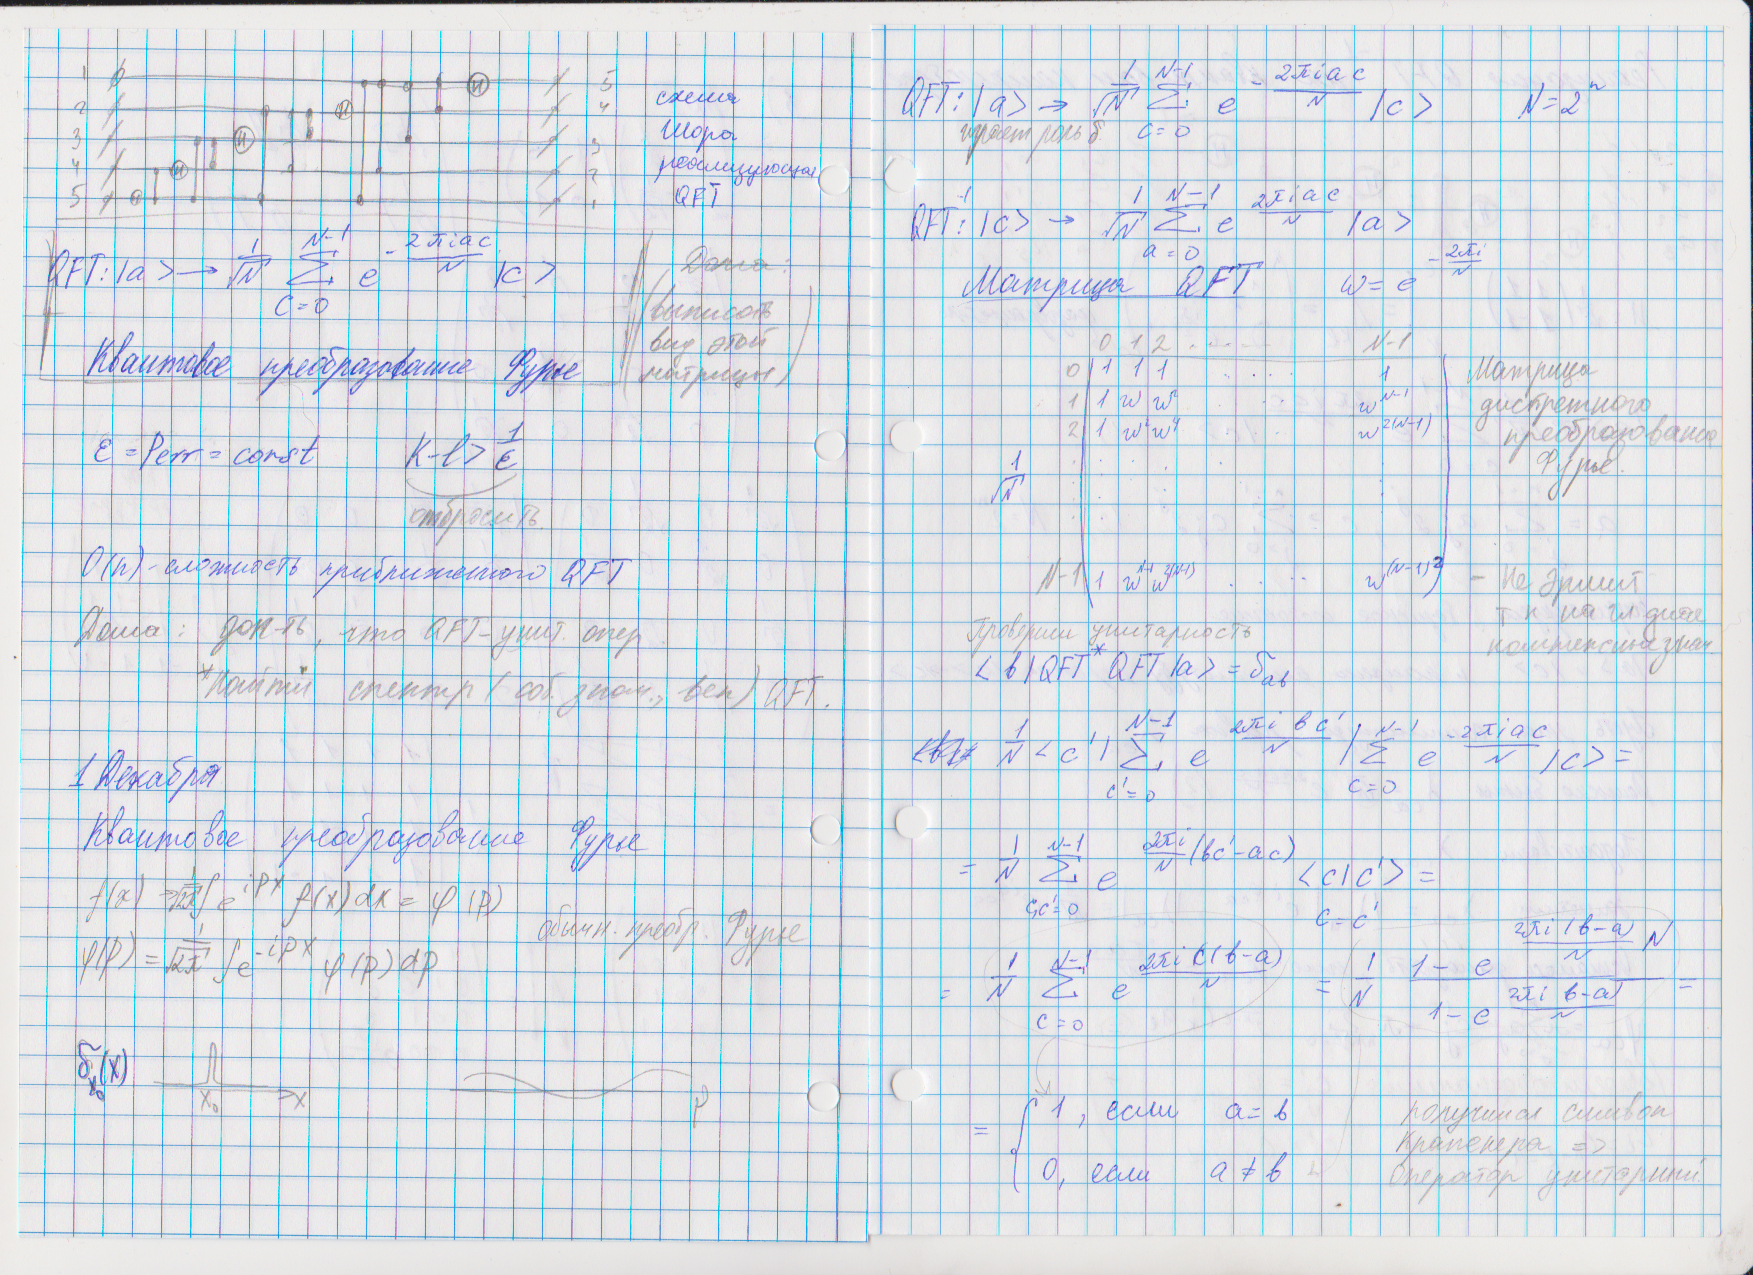 1
2
3
4
5
H
H
H
H
H
5
4
3
2
1
схема
Шора
реализующая
QFT
QFT: |a> → 1/√N ∑_{c=0}^{N-1} e^{-2πiac/N} |c>
Дома:
(выписать
вид этой
матрицы)
Квантовое преобразование Фурье
ε = Perr = const K-l > 1/ε
отбросить
O(n) - сложность приближенного QFT
Дома: док-ть, что QFT - унит. опер.
*Найти спектр (соб. знач., век) QFT.
1 Декабря
Квантовое преобразование Фурье
f(x) = 1/√2π ∫ e^{ipx} f(x) dx = φ(p)
обычн. преобр. Фурье
φ(p) = 1/√2π ∫ e^{-ipx} φ(p) dp
δ_{x₀}(x)
x₀
x
p
QFT: |a> → 1/√N ∑_{c=0}^{N-1} e^{-2πiac/N} |c> N = 2^n
играет роль б
QFT^{-1}: |c> → 1/√N ∑_{a=0}^{N-1} e^{2πiac/N} |a>
Матрица QFT w = e^{-2πi/N}
0 1 2 ..... N-1
0 1 1 1 ... 1
1 1 w w² ... w^{N-1}
2 1 w² w⁴ ... w^{2(N-1)}
1/√N
N-1 1 w^{N-1} w^{2(N-1)} .... w^{(N-1)²}
Матрица
дискретного
преобразования
Фурье.
- Не эрмит
т к на гл диаг
комплексн знач.
Проверим унитарность
<b|QFT* QFT|a> = δ_{ab}
1/N <c'| ∑_{c'=0}^{N-1} e^{2πibc'/N} | ∑_{c=0}^{N-1} e^{-2πiac/N} |c> =
= 1/N ∑_{c,c'=0}^{N-1} e^{2πi/N (bc'-ac)} <c|c'> =
c = c'
= 1/N ∑_{c=0}^{N-1} e^{2πic(b-a)/N} = 1/N (1 - e^{2πi(b-a)/N N})/(1 - e^{2πi(b-a)/N}) =
= { 1, если a = b
0, если a ≠ b
получился символ
Кронекера =>
Оператор унитарный.